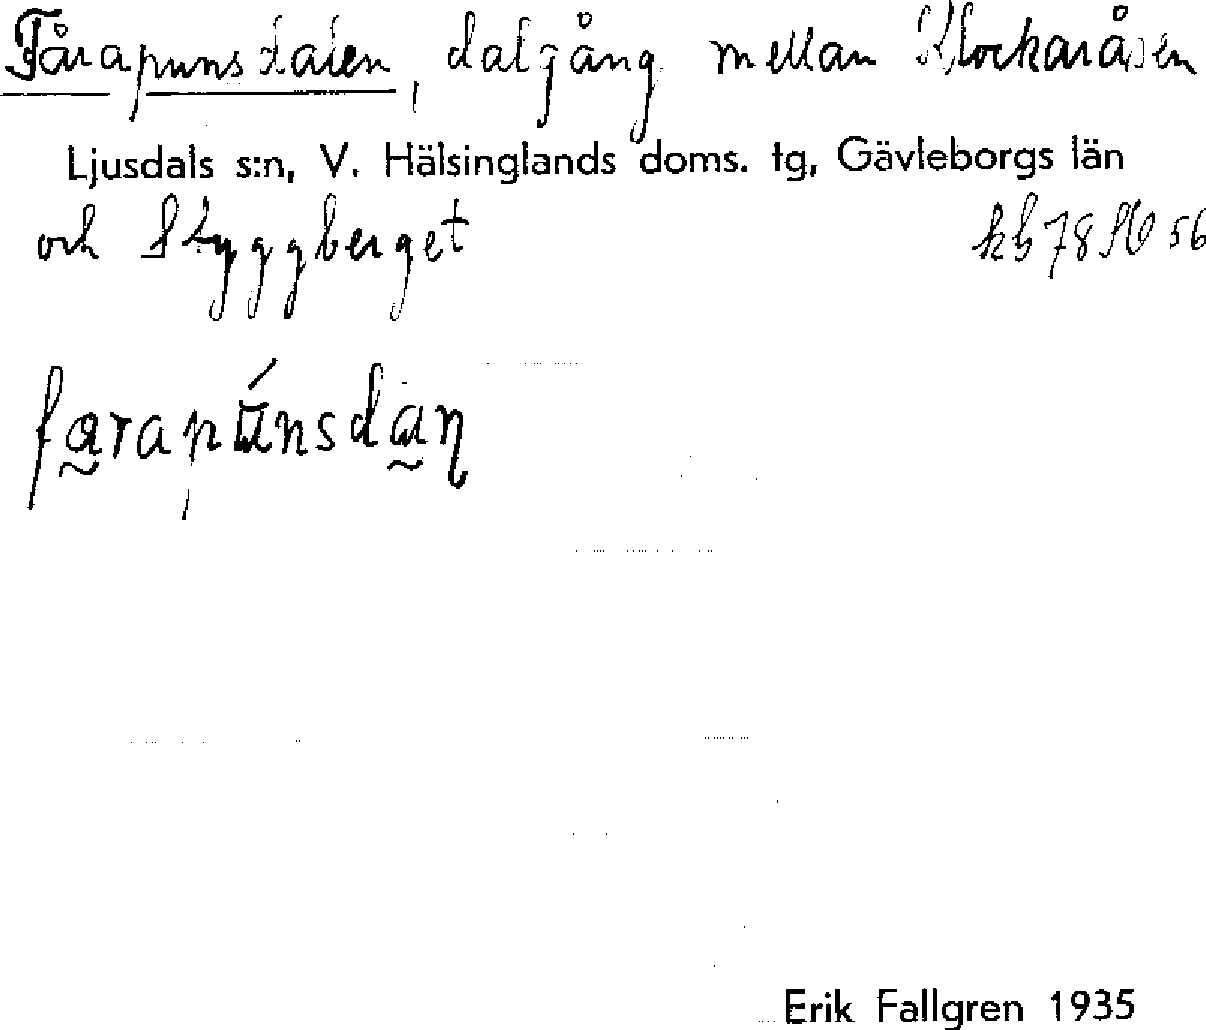 Fårapunsdalen, dalgång mellan Klockaråsen
Ljusdals s:n, V. Hälsinglands doms. tg, Gävleborgs län
och Styggberget
kb 78 56
Erik Fallgren 1935